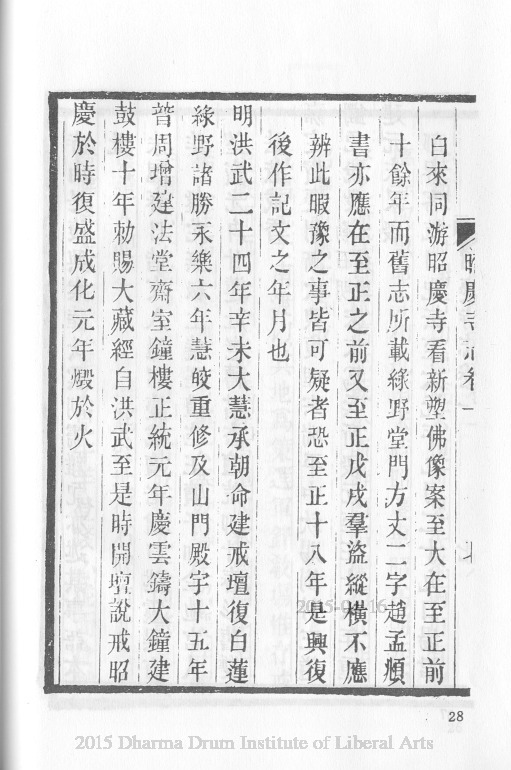 白來同游昭慶寺看新塑佛像案至大在至正前
十餘年而舊志所載綠野堂門方丈二字趙孟頫
書亦應在至正之前又至正戊戌羣盜縱橫不應
辨此暇豫之事皆可疑者恐至正十八年是興復
後作記文之年月也
明洪武二十四年辛未大慧承朝命建戒壇復白蓮
綠野諸勝永樂六年慧皎重修及山門殿宇十五年
普周增建法堂齋室鐘樓正統元年慶雲鑄大鐘建
鼓樓十年勅賜大藏經自洪武至是時開壇說戒昭
慶於時復盛成化元年燬於火
28
2015 Dharma Drum Institute of Liberal Arts